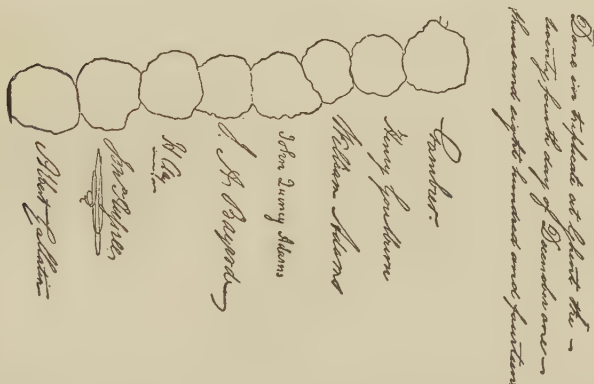 Done in triplicate at Ghent the
twenty fourth day of December one
thousand eight hundred and fourteen
Gambier.
Henry Goulburn
William Adams
John Quincy Adams
J. A. Bayard
H. Clay
Jon.ª Russell
Albert Gallatin